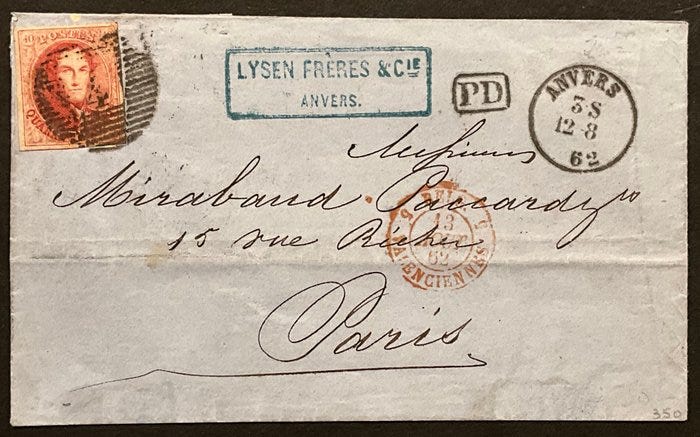 LYSEN FRÈRES & CIE
ANVERS.
PD
ANVERS
3 S
12 8
62
Messieurs
Mirabaud Paccard & Co
15 rue Richer
Paris
13
62
VALENCIENNES
350